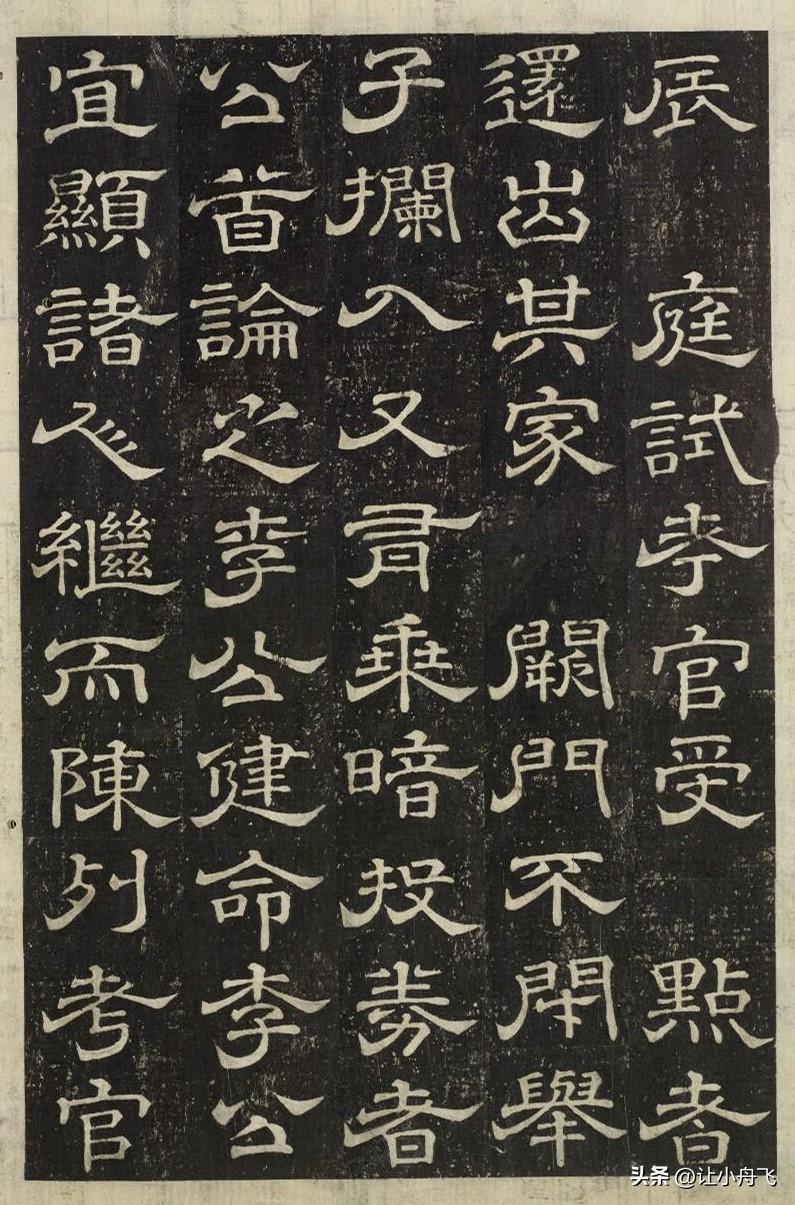 辰 庭試考官受 點者
還出其家 闕門不閉舉
子攔入又有乘暗投券者
公首論之李公健命李公
宜顯諸 繼而陳列考官
头条 @让小舟飞